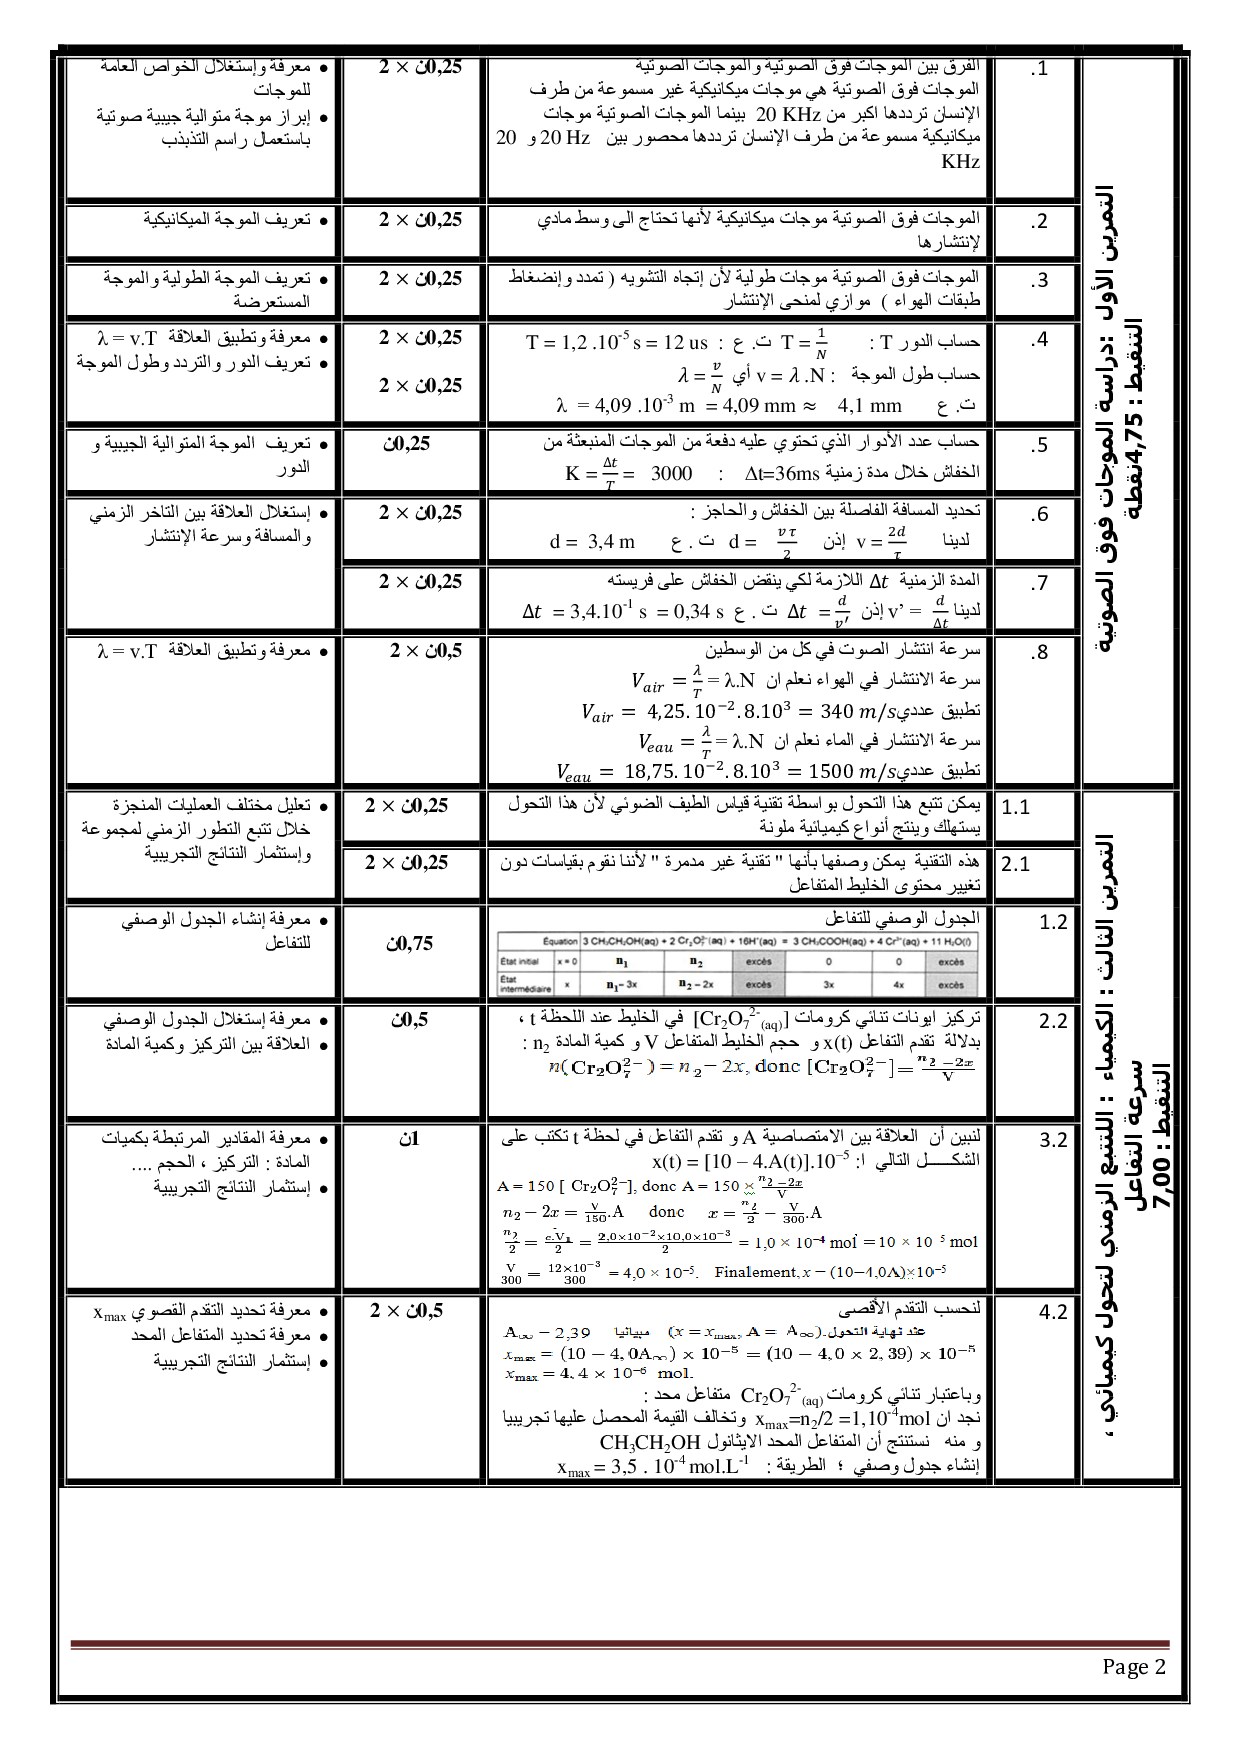 التمرين الأول :دراسة الموجات فوق الصوتية
التنقيط : 4,75نقطة
.1
الفرق بين الموجات فوق الصوتية والموجات الصوتية
الموجات فوق الصوتية هي موجات ميكانيكية غير مسموعة من طرف
الإنسان ترددها اكبر من 20 KHz بينما الموجات الصوتية موجات
ميكانيكية مسموعة من طرف الإنسان ترددها محصور بين 20 Hz و 20
KHz
0,25ن × 2
• معرفة وإستغلال الخواص العامة
للموجات
• إبراز موجة متوالية جيبية صوتية
باستعمال راسم التذبذب
.2
الموجات فوق الصوتية موجات ميكانيكية لأنها تحتاج الى وسط مادي
لإنتشارها
0,25ن × 2
• تعريف الموجة الميكانيكية
.3
الموجات فوق الصوتية موجات طولية لأن إتجاه التشويه ( تمدد وإنضغاط
طبقات الهواء ) موازي لمنحى الإنتشار
0,25ن × 2
• تعريف الموجة الطولية والموجة
المستعرضة
.4
حساب الدور T : T = 1/N ت. ع : T = 1,2 .10⁻⁵ s = 12 us
حساب طول الموجة : v = λ .N أي λ = v/N
ت. ع λ = 4,09 .10⁻³ m = 4,09 mm ≈ 4,1 mm
0,25ن × 2
0,25ن × 2
• معرفة وتطبيق العلاقة λ = v.T
• تعريف الدور والتردد وطول الموجة
.5
حساب عدد الأدوار الذي تحتوي عليه دفعة من الموجات المنبعثة من
الخفاش خلال مدة زمنية Δt=36ms : K = Δt/T = 3000
0,25ن
• تعريف الموجة المتوالية الجيبية و
الدور
.6
تحديد المسافة الفاصلة بين الخفاش والحاجز :
لدينا v = 2d/τ إذن d = v τ/2 ت . ع d = 3,4 m
0,25ن × 2
• إستغلال العلاقة بين التاخر الزمني
والمسافة وسرعة الإنتشار
.7
المدة الزمنية Δt اللازمة لكي ينقض الخفاش على فريسته
لدينا v’ = d/Δt إذن Δt = d/v′ ت . ع Δt = 3,4.10⁻¹ s = 0,34 s
0,25ن × 2
.8
سرعة انتشار الصوت في كل من الوسطين
سرعة الانتشار في الهواء نعلم ان V_air = λ/T = λ.N
تطبيق عددي V_air = 4,25. 10⁻². 8.10³ = 340 m/s
سرعة الانتشار في الماء نعلم ان V_eau = λ/T = λ.N
تطبيق عددي V_eau = 18,75. 10⁻². 8.10³ = 1500 m/s
0,5ن × 2
• معرفة وتطبيق العلاقة λ = v.T
التمرين الثالث : الكيمياء : اللتتبع الزمني لتحول كيميائي ،
سرعة التفاعل
التنقيط : 7,00
1.1
يمكن تتبع هذا التحول بواسطة تقنية قياس الطيف الضوئي لأن هذا التحول
يستهلك وينتج أنواع كيميائية ملونة
0,25ن × 2
• تعليل مختلف العمليات المنجزة
خلال تتبع التطور الزمني لمجموعة
وإستثمار النتائج التجريبية
2.1
هذه التقنية يمكن وصفها بأنها " تقنية غير مدمرة " لأننا نقوم بقياسات دون
تغيير محتوى الخليط المتفاعل
0,25ن × 2
1.2
الجدول الوصفي للتفاعل
Équation 3 CH₃CH₂OH(aq) + 2 Cr₂O₇²⁻(aq) + 16H⁺(aq) = 3 CH₃COOH(aq) + 4 Cr³⁺(aq) + 11 H₂O(l)
État initial x = 0 n₁ n₂ excès 0 0 excès
État intermédiaire x n₁– 3x n₂ – 2x excès 3x 4x excès
0,75ن
• معرفة إنشاء الجدول الوصفي
للتفاعل
2.2
تركيز ايونات تنائي كرومات [Cr₂O₇²⁻(aq)] في الخليط عند اللحظة t ،
بدلالة تقدم التفاعل x(t) و حجم الخليط المتفاعل V و كمية المادة n₂ :
n( Cr₂O₇²⁻ ) = n₂ – 2x, donc [Cr₂O₇²⁻] = n₂ –2x/V
0,5ن
• معرفة إستغلال الجدول الوصفي
• العلاقة بين التركيز وكمية المادة
3.2
لنبين أن العلاقة بين الامتصاصية A و تقدم التفاعل في لحظة t تكتب على
الشكـــــل التالي ا: x(t) = [10 – 4.A(t)].10⁻⁵
A = 150 [ Cr₂O₇²⁻], donc A = 150 × n₂ –2x/V
n₂ – 2x = V/150 .A donc x = n₂/2 – V/300 .A
n₂/2 = c.V₁/2 = 2,0×10⁻²×10,0×10⁻³/2 = 1,0 × 10⁻⁴ mol = 10 × 10⁻⁵ mol
V/300 = 12×10⁻³/300 = 4,0 × 10⁻⁵. Finalement, x = (10–4,0A)×10⁻⁵
1ن
• معرفة المقادير المرتبطة بكميات
المادة : التركيز ، الحجم ....
• إستثمار النتائج التجريبية
4.2
لنحسب التقدم الأقصى
عند نهاية التحول. (x = x_max, A = A∞) مبيانيا A∞ = 2,39
x_max = (10 – 4,0A∞) × 10⁻⁵ = (10 – 4,0 × 2,39) × 10⁻⁵
x_max = 4,4 × 10⁻⁶ mol.
وباعتبار تنائي كرومات Cr₂O₇²⁻(aq) متفاعل محد :
نجد ان x_max=n₂/2 =1,10⁻⁴mol وتخالف القيمة المحصل عليها تجريبيا
و منه نستنتج أن المتفاعل المحد الايثانول CH₃CH₂OH
إنشاء جدول وصفي ؛ الطريقة : x_max = 3,5 . 10⁻⁴ mol.L⁻¹
0,5ن × 2
• معرفة تحديد التقدم القصوي x_max
• معرفة تحديد المتفاعل المحد
• إستثمار النتائج التجريبية
Page 2